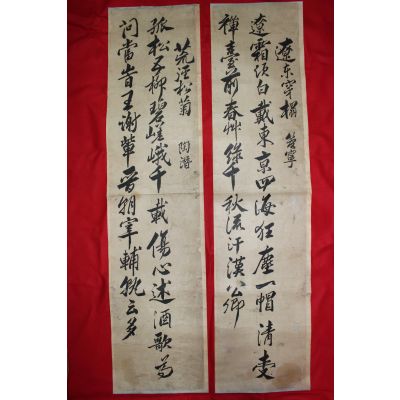 遼東穿榻 管寧
遼霜須白戴東京四海狂塵一帽清受
禪臺前春艸綠千秋流汗漢公卿
荒逕松菊 陶潛
孤松五柳碧嵯峨千載傷心述酒歌為
問當旹王謝輩晉朝宰輔孰云多